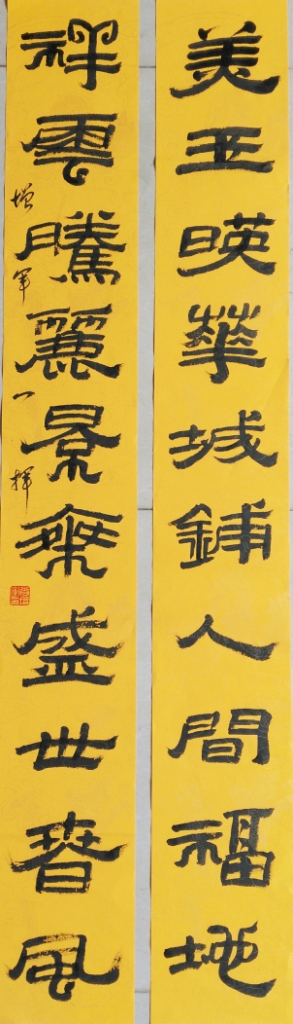 美玉暎華城鋪人間福地
祥雲騰麗景樂盛世春風
增軍一揮